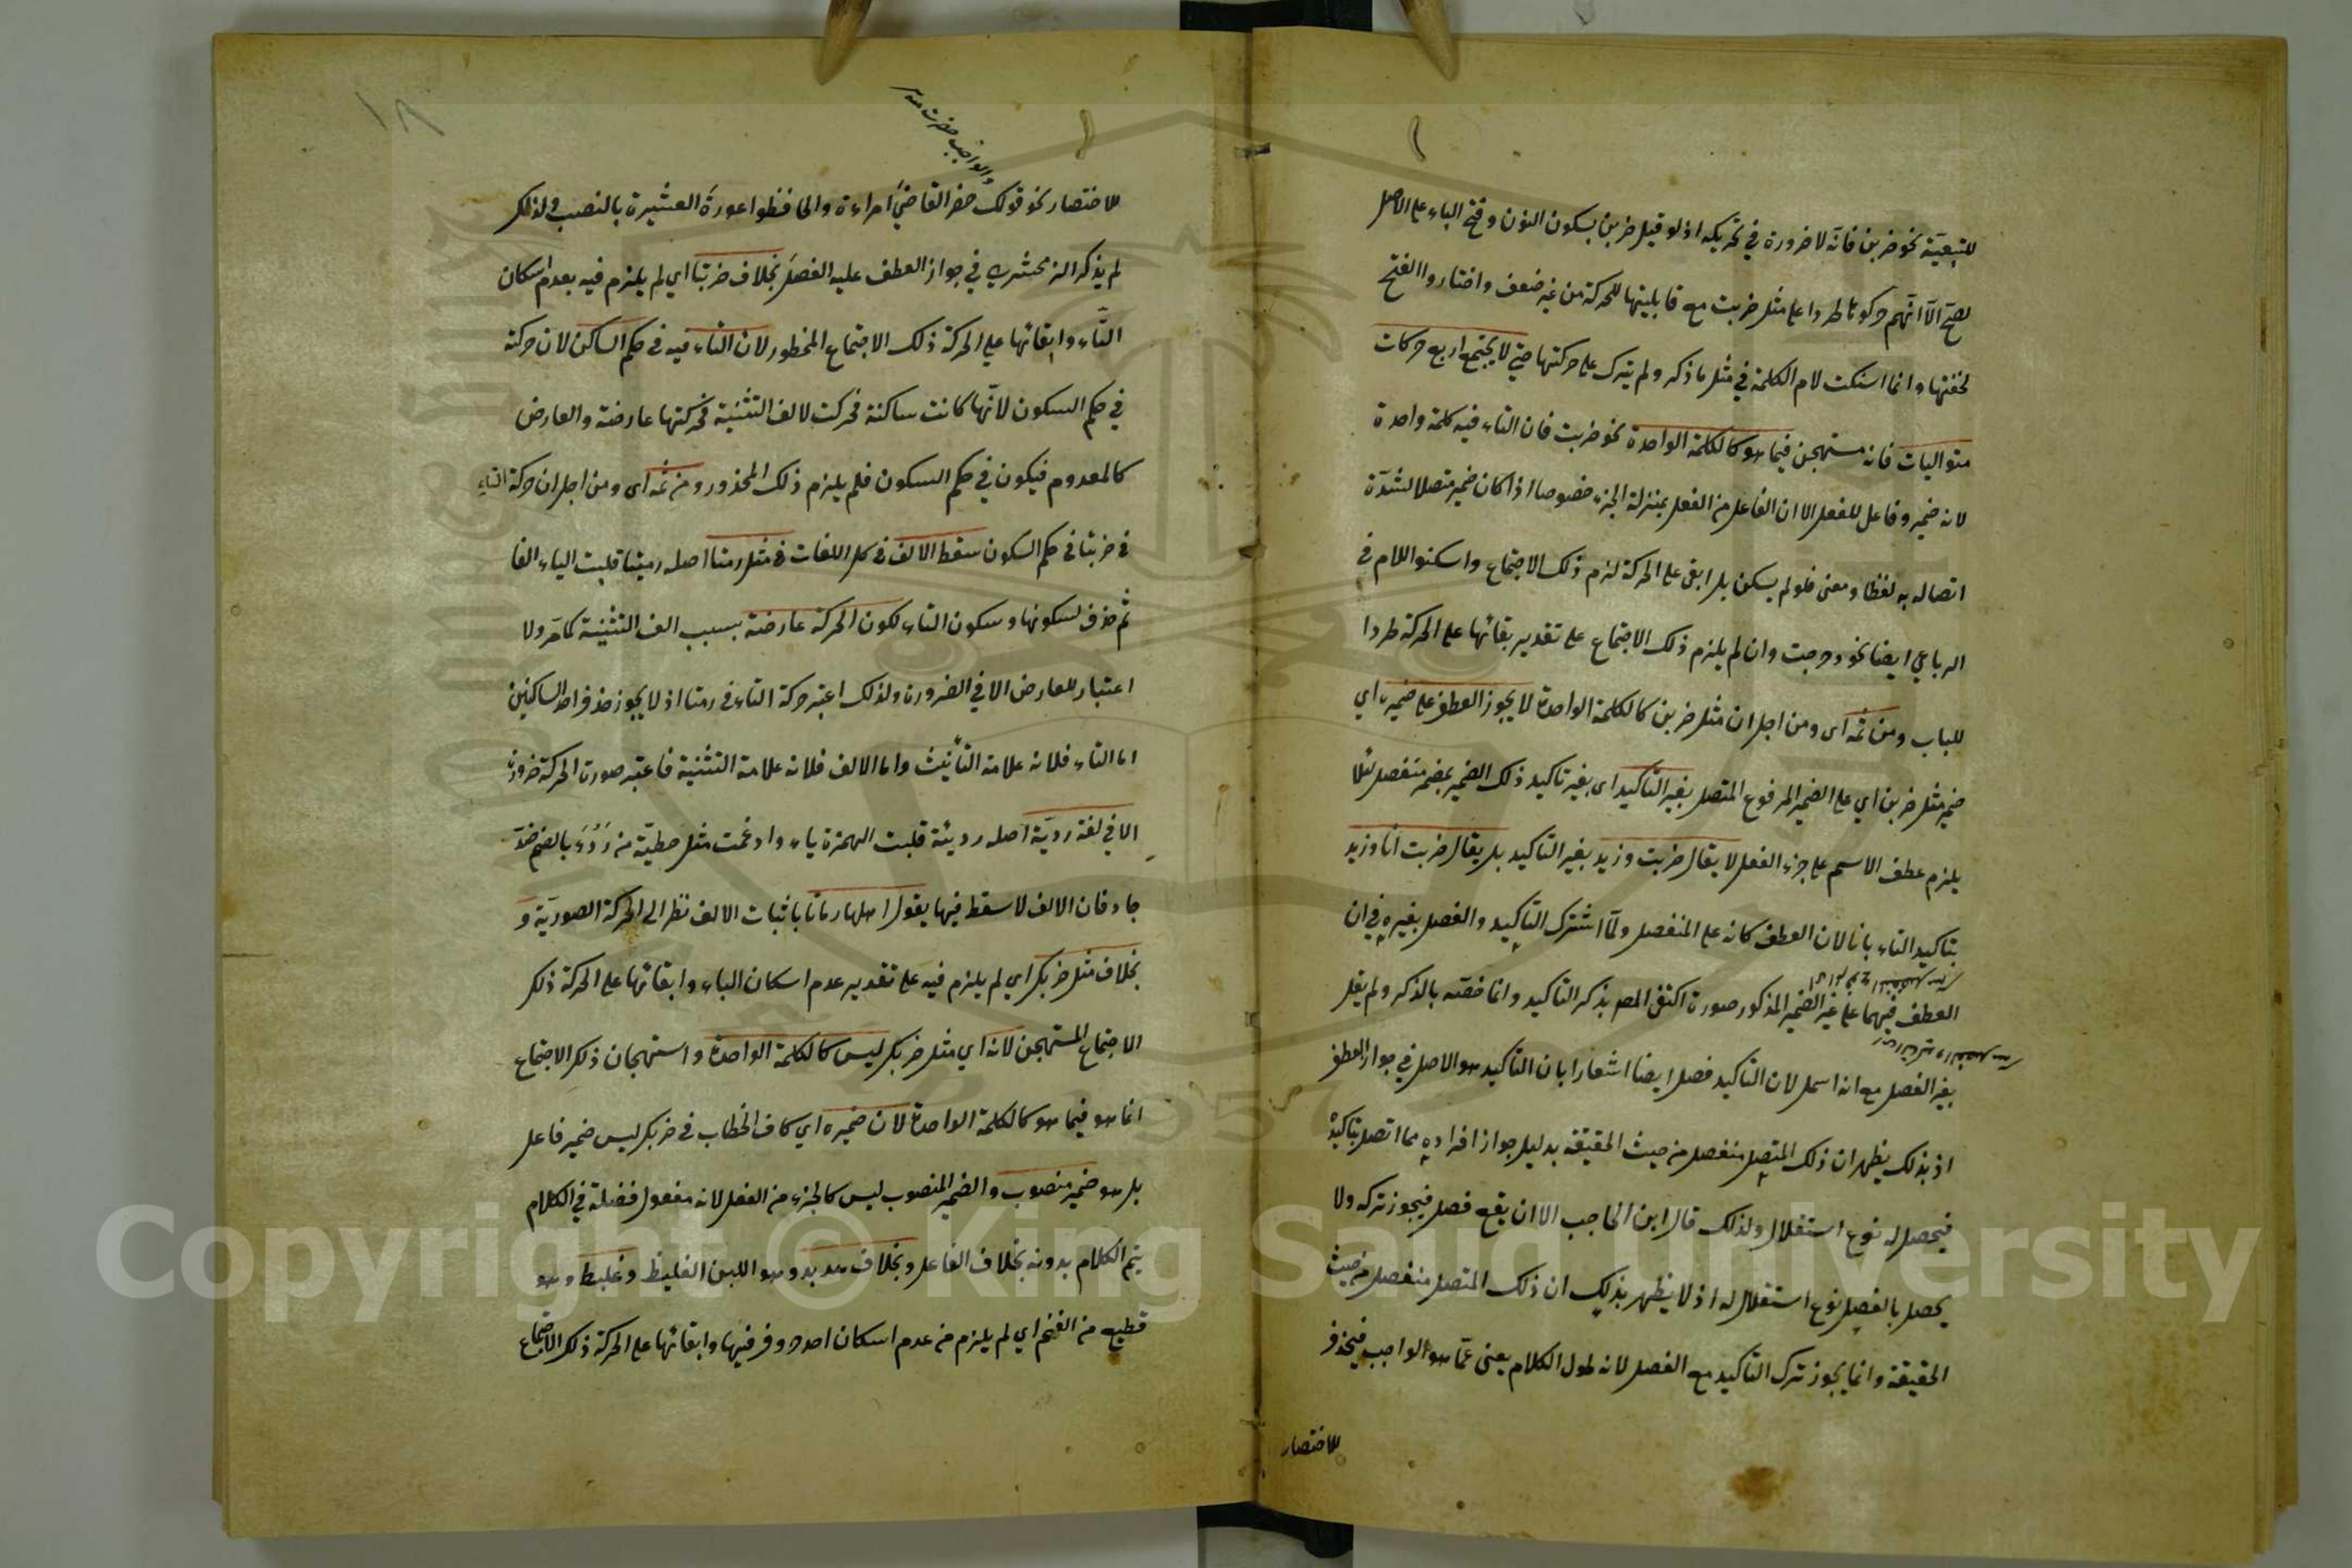 للتبعية نحو ضربن فانه لا ضرورة في تحريكه اذ لو قيل ضربن بسكون النون وفتح الباء على الاصل
لصح الا انهم حركوها طردا على مثل ضربت مع قابليتها للحركة من غير ضعف واختاروا الفتح
لخفتها وانما اسكنت لام الكلمة في مثل ما ذكر ولم يترك على حركتها حتى لا يجتمع اربع حركات
متواليات فانه مستهجن فيما هو كالكلمة الواحدة نحو ضربت فان التاء فيه كلمة واحدة
لانه ضمير وفاعل للفعل الا ان الفاعل من الفعل بمنزلة الجزء خصوصا اذا كان ضمير متصلا لشدة
اتصاله به لفظا ومعنى فلو لم يسكن بل ابقى على الحركة لزم ذلك الاجتماع واسكنوا اللام في
الرباعي ايضا نحو دحرجت وان لم يلزم ذلك الاجتماع على تقدير بقائها على الحركة طردا
للباب ومن ثمه اى ومن اجل ان مثل ضربن كالكلمة الواحدة لا يجوز العطف على ضميره اي
ضمير مثل ضربن اي على الضمير المرفوع المتصل بغير التاكيد اى بغير تاكيد ذلك الضمير بضمير منفصل لئلا
يلزم عطف الاسم على جزء الفعل لا يقال ضربت وزيد بغير التاكيد بل يقال ضربت انا وزيد
بتاكيد التاء بانا لان العطف كانه على المنفصل ولما اشترك التاكيد والفصل بغيره في ان
العطف فيهما على غير الضمير المذكور صورة اكتفى المص بذكر التاكيد وانما خصه بالذكر ولم يقل
بغير الفصل مع انه اسهل لان التاكيد فصل ايضا اشعارا بان التاكيد هو الاصل في جواز العطف
اذ بذلك يظهر ان ذلك المتصل منفصل من حيث الحقيقة بدليل جواز افراده مما اتصل بتاكيده
فيحصل له نوع استقلال ولذلك قال ابن الحاجب الا ان يقع فصل فيجوز تركه ولا
يحصل بالفصل نوع استقلال له اذ لا يظهر بذلك ان ذلك المتصل منفصل من حيث
الحقيقة وانما يجوز ترك التاكيد مع الفصل لانه طول الكلام يغنى عما هو الواجب فيحذف
للاختصار
١٨
للاختصار نحو قولك حضر القاضي امراءة والحافظوا عورة العشيرة بالنصب ولذلك
لم يذكر الزمخشري في جواز العطف عليه الفصل بخلاف ضربتا اي لم يلزم فيه بعدم اسكان
التاء وابقائها على الحركة ذلك الاجتماع المحظور لان التاء فيه في حكم الساكن لان حركة
في حكم السكون لانها كانت ساكنة فحركت لالف التثنية فحركتها عارضة والعارض
كالمعدوم فيكون في حكم السكون فلم يلزم ذلك المحذور ومن ثمه اى ومن اجل ان حركة التاء
في ضربتا في حكم السكون سقط الالف في كل اللغات في مثل رمتا اصله رميتا قلبت الياء الفا
ثم حذف لسكونها وسكون التاء لكون الحركة عارضة بسبب الف التثنية كما مر ولا
اعتبار للعارض الا في الضرورة ولذلك اعتبر حركة التاء في رمتا اذ لا يجوز حذف احد الساكنين
اما التاء فلانه علامة التأنيث واما الالف فلانه علامة التثنية فاعتبر صورة الحركة ضرورة
الا في لغة ردية اصله رديئة قلبت الهمزة ياء وادغمت مثل خطية من ردؤ بالضم ضد
جاد فان الالف لا سقط فيها يقول اهلها رماتا باثبات الالف نظر الى الحركة الصورية و
بخلاف مثل ضربك اي لم يلزم فيه على تقدير عدم اسكان الباء وابقائها على الحركة ذلك
الاجتماع المستهجن لانه اي مثل ضربك ليس كالكلمة الواحدة واستهجان ذلك الاجتماع
انما هو فيما هو كالكلمة الواحدة لان ضميره اي كاف الخطاب في ضربك ليس ضمير فاعل
بل هو ضمير منصوب والضمير المنصوب ليس كالجزء من الفعل لانه مفعول فضلة في الكلام
يتم الكلام بدونه بخلاف الفاعل وبخلاف هدبد وهو اللبن الغليظ وعلبط وهو
قطيع من الغنم اي لم يلزم من عدم اسكان احد حروف فيها وابقائها على الحركة ذلك الاجتماع
Copyright © King Saud University